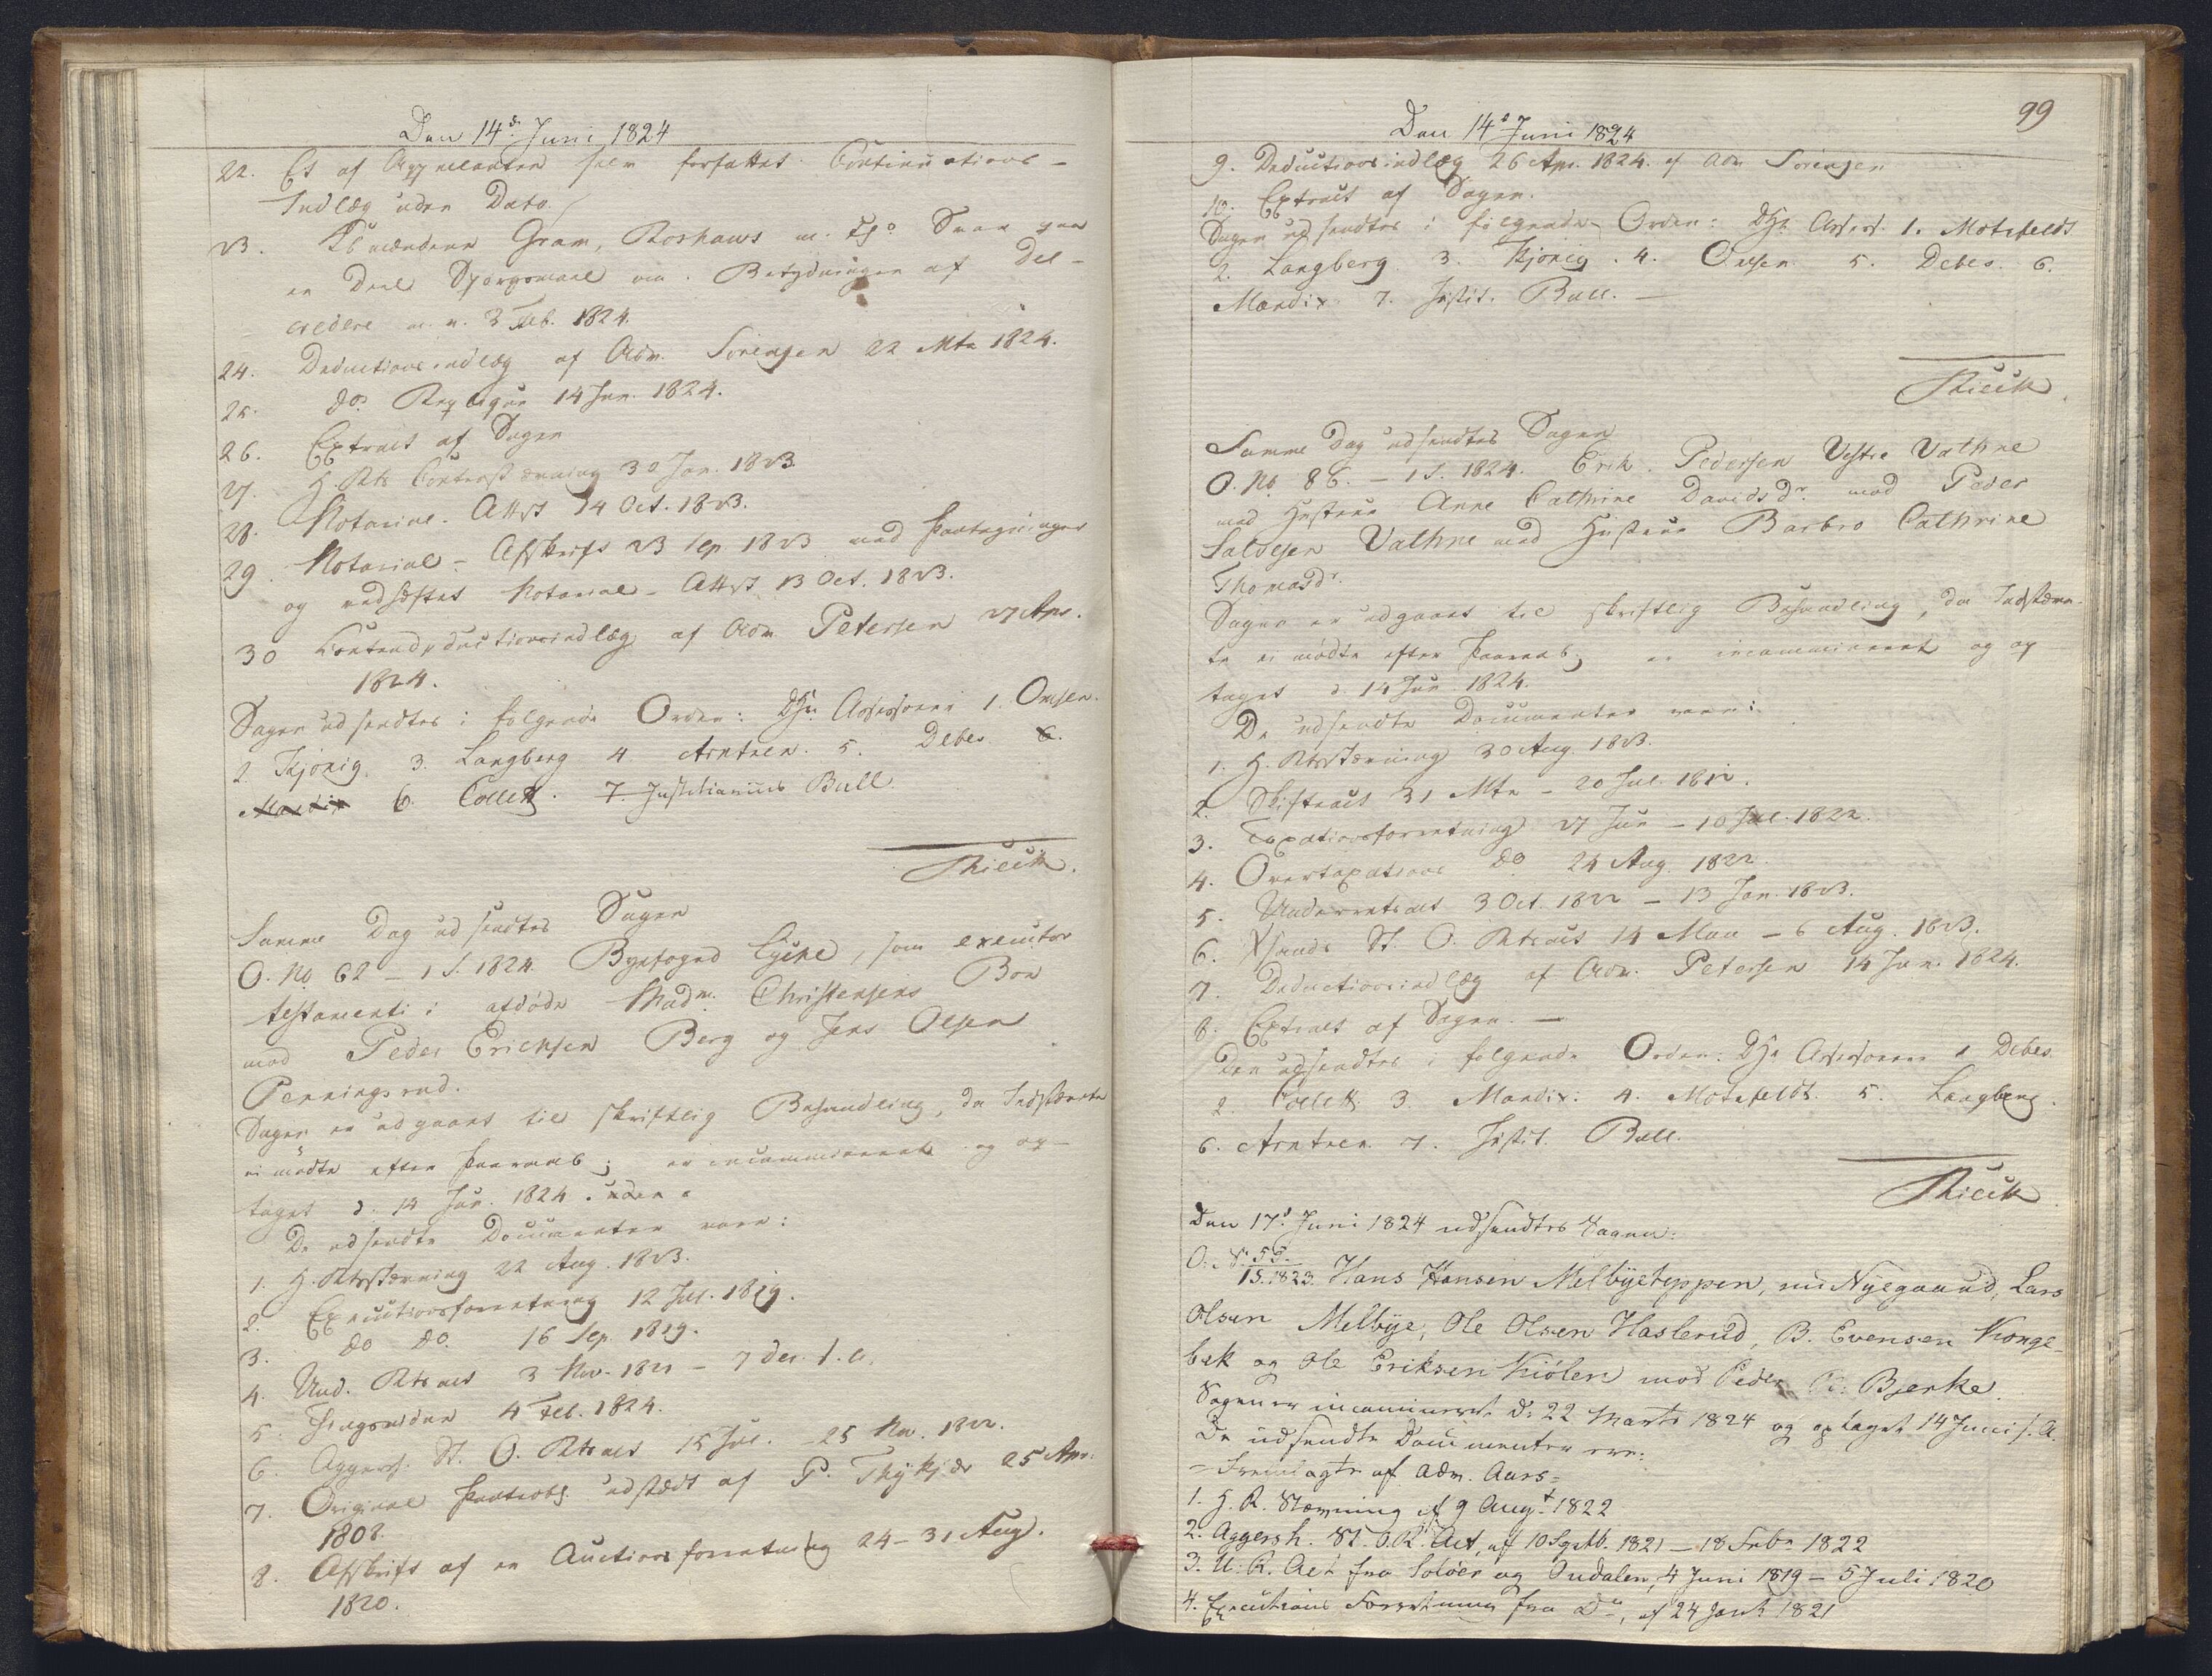 Den 14d. Juni 1824
22. Et af Appellanten selv forfattet Continuations-
Indlæg uden Dato.
23. Kbmændene Gram, Roshauw m. Fl. Svar paa
en Deel Spørgsmaal om Betydningen af del-
credere m. v. 3 Feb. 1824.
24. Deductionsindlæg af Adv. Sørensen 22 Mts 1824.
25. do. Replique 14 Jun. 1824.
26. Extract af Sagen
27. H. Rts Contrastævning 30 Jan. 1823
28. Notarial-Attest 14 Oct. 1823.
29. Notarial-Afskrift 23 Sep 1823 med Paategninger
og vedhæftet Notarial-Attest 13 Oct. 1823.
30 Contradeductionsindlæg af Adv. Petersen 27 Apr.
1824.
Sagen udsendtes i følgende Orden: DHr Assessorer 1. Omsen.
2. Kjønig 3. Langberg 4 Arntzen. 5. Debes 6.
Mandix 6. Collett. 7. Justitiarius Bull.
Samme Dag udsendtes Sagen
O. No 62 – 1 S. 1824. Byefoged Lycke, som executor
testamenti i afdøde Madm. Christensens Boe
mod Peder Erichsen Berg og Jens Olsen
Penningsrud.
Sagen er udgaaet til skriftlig Behandling, da Indstævnte
ei mødte efter Paaraab; er incammineret og op-
taget d. 14 Jun. 1824.
De udsendte Documenter vare:
1. H. Rtsstævning 22 Aug. 1823.
2. Executionsforretning 12 Jul. 1819.
3. do do. 16 Sep. 1819.
4. Und. Rtsact 3 Nov. 1821 – 7 Dec. s. a.
5. Thingsvidne 4 Feb. 1824.
6. Aggersh. St. O. Rtsact 15 Jul. – 25 Nov. 1822.
7. Original Panteobl. udstædt af P. 25 Apr.
1808.
8. Afskrift af en Auctionsforretning 24–31 Aug.
1820.
99
Den 14d Juni 1824
9. Deductionsindlæg 26 Apr. 1824. af Adv. Sørensen
10. Extract af Sagen.
Sagen udsendtes i følgende Orden: DHr Assess. 1. Motzfeldt
2. Langberg. 3. Kjønig. 4. Omsen 5. Debes. 6.
Mandix 7. Justit. Bull. —
Samme Dag udsendtes Sagen
O. No 86. – 1 S. 1824. Erik Pedersen Vestre Vathne
med Hustrue Anne Cathrine Davidsdr. mod Peder
Salvesen Vathne med Hustrue Barbro Cathrine
Thomasdr.
Sagen er udgaaet til skriftlig Behandling, da Indstævn-
te ei mødte efter Paaraab; er incammineret og op
taget d. 14 Jun. 1824.
De udsendte Documenter vare:
1. H. Rtsstævning 30 Aug. 1823.
2. Skifteact 31 Mts – 20 Jul. 1812.
3. Taxationsforretning 27 Jun – 10 Jul. 1822.
4. Overtaxations do 24 Aug. 1822.
5. Underretsact 3 Oct. 1822 – 13 Jan. 1823.
6. Xsands St. O. Rtsact 14 Mai – 6 Aug. 1823.
7. Deductionsindlæg af Adv. Petersen 14 Jun. 1824.
8. Extract af Sagen. —
Den udsendtes i følgende Orden: DHr Assessorer 1 Debes
2 Collett. 3. Mandix. 4. Motzfeldt. 5. Langberg.
6. Arntzen 7. Justit. Bull.
Den 17d. Juni 1824 udsendtes Sagen:
O: N: 55.
1S. 1823. Hans Hansen Melbyeteppen, nu Nyegaard, Lars
Olsen Melbye, Ole Olsen Haslerud, B. Evensen Konge-
bæk og Ole Eriksen Kiølen mod Peder Bjerke.
Sagen er incamineret d: 22 Marts 1824 og optaget 14 Juni s. A.
De udsendte Documenter ere:
= Fremlagte af Adv. Aars =
1. H. R. Stævning af 9 Augt 1822
2. Aggersh. St. O. R. Act, af 10 Septb. 1821 – 18 Febr 1822
3. U: R. Act fra Soløer og Oudalen, 4 Juni 1819 – 5 Juli 1820
4. Executions Forretning fra Do, af 24 Jan 1821